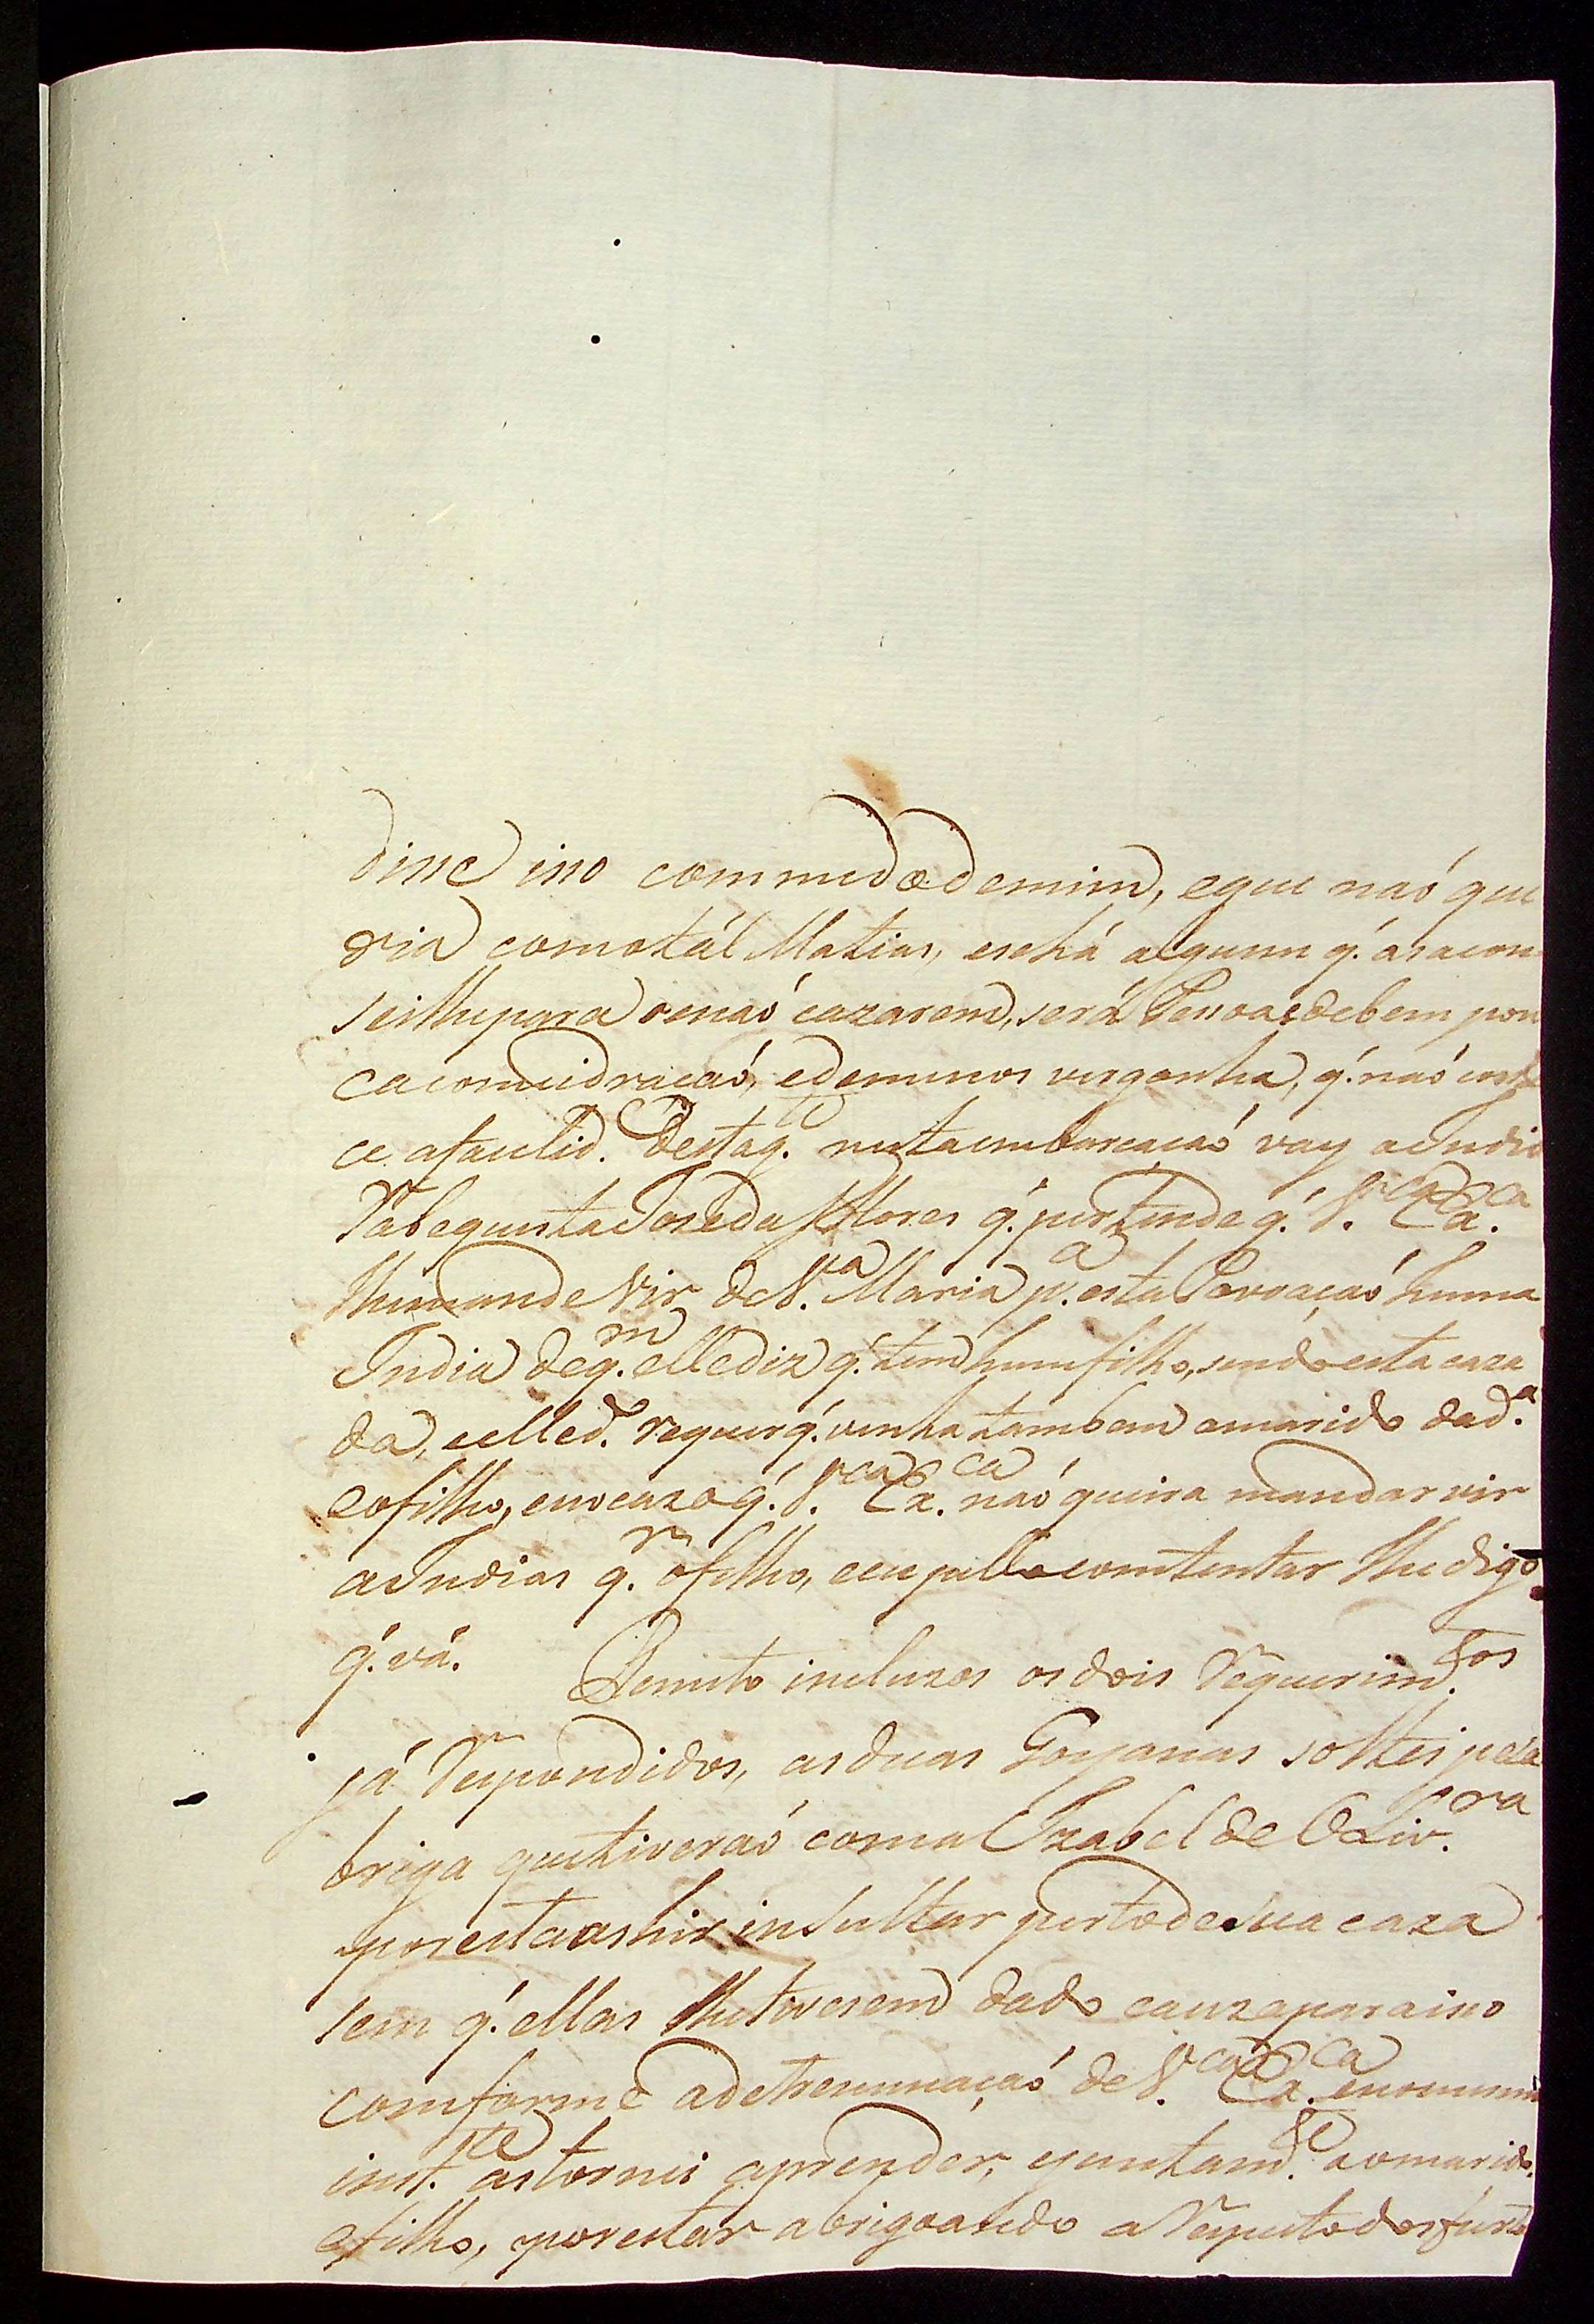 disse isso commedo demim, eque naó que
ria comotál Matias, esehá alguem q.' asacon
selhepara senaó cazarem, será Pessoa debem pou
ca consideraçaó, edemenos vergonha, q.' naó conhe
ce afaselid.e Destag.te nestaembarcaçaó vay oIndio
Rabequista Joze das Flores q.' pertende q.' V.a Ex.ca
lhemande vir deV.a Maria p.a esta Povoaçaó huma
India deq.m elle diz q.' tem humfilho, sendo esta caza
da, eelled.o requer q.' venha tambem omarido dad.a
eofilho, enocazo q.' V.ca Ex.ca naó queira mandar vir
aIndia q.r ofilho, eeu pello contentar lhe digo
q.' vá. Remeto incluzos os dois Requerim.tos
já Respondidos, as duas Goyanas soltei pela
briga quetiveraó coma Izabel de Oliv.ra
por esta as hir insultar perto de sua caza
sem q.' ellas lhe tivesem dado cauzaparaiso
comforme adetreminaçaó de V.ca Ex.ca enomesmo
inst.te as tornei aprender, ejuntam.te aomarido,
efilho, porestar abrigoando a Respeito dos furto